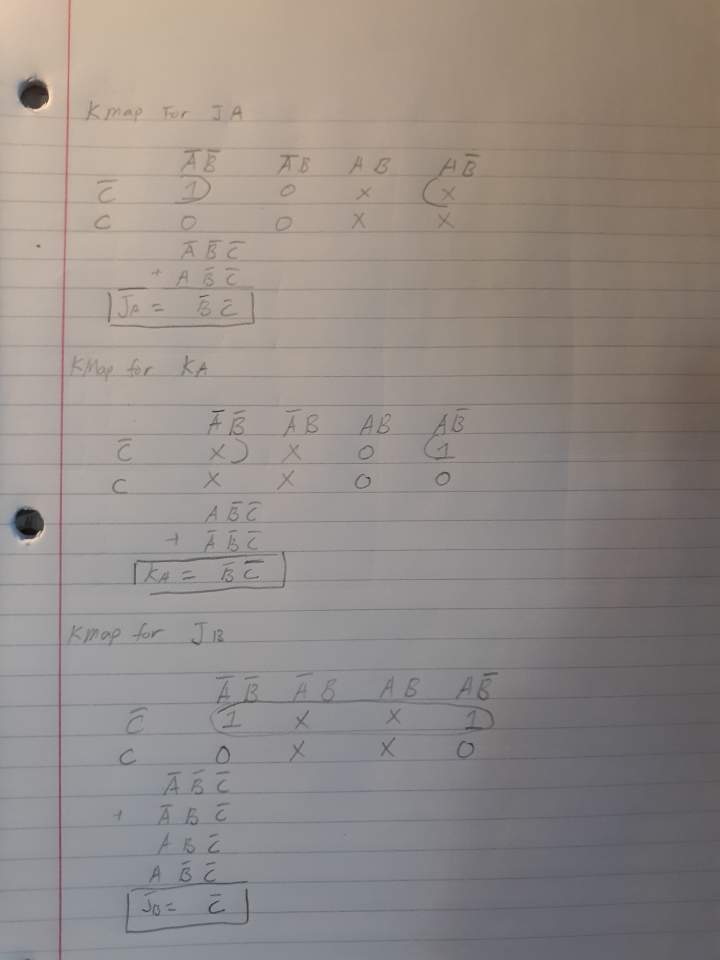 Kmap For JA
A̅ B̅ A̅ B A B A B̅
C̅ 1 0 X X
C 0 0 X X
A̅ B̅ C̅
+ A B̅ C̅
JA = B̅ C̅
KMap for KA
A̅ B̅ A̅ B AB AB̅
C̅ X X 0 1
C X X 0 0
A B̅ C̅
+ A̅ B̅ C̅
KA = B̅ C̅
Kmap for JB
A̅ B̅ A̅ B A B A B̅
C̅ 1 X X 1
C 0 X X 0
A̅ B̅ C̅
+ A̅ B C̅
A B C̅
A B̅ C̅
JB = C̅